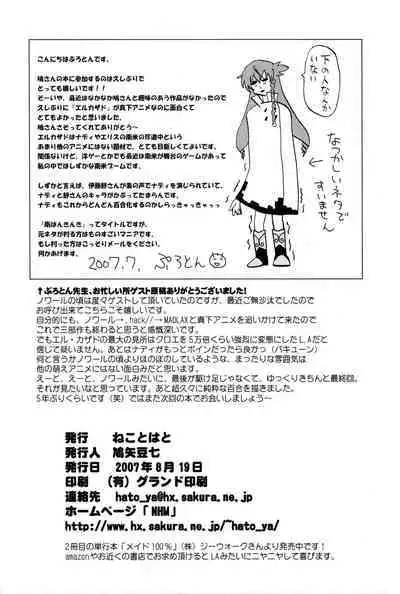 こんにちはぷろとんです。
鳩さんの本に参加するのは久しぶりで
とっても嬉しいです!!
そーいや、最近はなかなか鳩さんと趣味のあう作品がなかったので
久しぶりに「エルカザド」が真下アニメなのに面白くて
とてもよかったと思いました。
鳩さんさそってくれてありがとう〜
エルカザドはナディやエリスの南米の珍道中という
あまり他のアニメにはない題材で、とても目新しくてよいです。
関係ないけど、洋ゲーとかでも最近は南米が舞台のゲームがあって
私の中ではしずかな南米ブームです。
しずかと言えば、伊藤静さんが素の声でナディを演じられていて、
ナディと静さんのキャラがかぶってたまらんです。
ナディもこれからどんどん百合化するのかしらきゃっきゃっっ
「南はんきんき」ってタイトルですが、
元ネタが判る方はものすごいマニアです。
もし判った方はこっそりメールをください。
何かあげます。
2007.7. ぷろとん
下の人なんか
いない
なつかしいネタで
すいません
↑ぷろとん先生、お忙しい所ゲスト原稿ありがとうございました!
ノワールの頃は度々ゲストして頂いていたのですが、最近ご無沙汰でしたので
お呼び出来てこちらこそ嬉しいです。
自分的にも、ノワール→.hack//→MADLAXと真下アニメを追いかけて来たので
これで三部作も終わると思うと感慨深いです。
でもエル・カザドの最大の見所はクロエを5万倍くらい強烈に変態にしたL.Aだと
信じて疑いません。あとはナディがもっとボインだったら良かっ(バキューン)
何と言うかノワールの頃よりほのぼのしているような、まったりな雰囲気は
他の萌えアニメにはない面白みだと思います。
えーと、えーと、ノワールみたいに、最後が駆け足じゃなくて、ゆっくりきちんと最終回。
それが見たいなと思っています。あと超久々に純粋な百合を描きました。
5年ぶりくらいです(笑)ではまた次回の本でお会いしましょう〜
発行 ねことはと
発行人 鳩矢豆七
発行日 2007年8月19日
印刷 (有)グランド印刷
連絡先 hato_ya@hx.sakura.ne.jp
ホームページ「NHM」
http://www.hx.sakura.ne.jp/~hato_ya/
2冊目の単行本「メイド100%」(株)ジーウォークさんより発売中です!
amazonやお近くの書店でお求め頂けるとLAみたいにニヤニヤして喜びます。